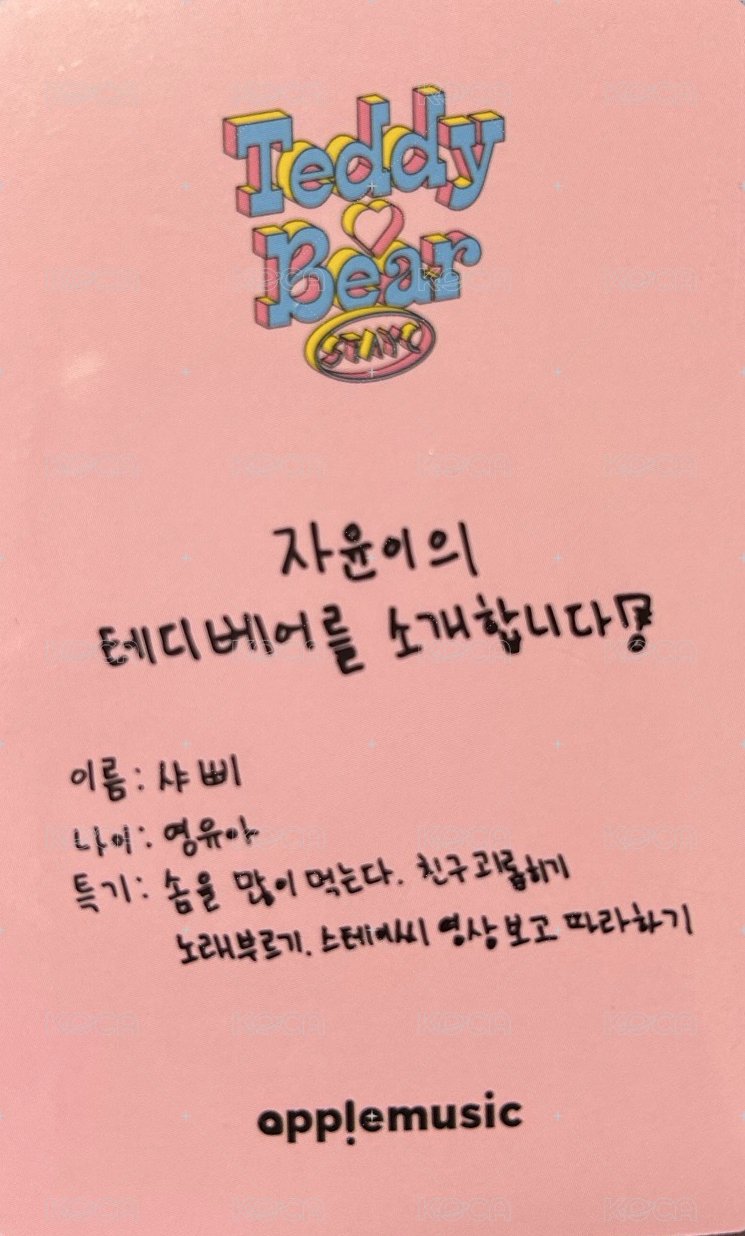 Teddy
Bear
STAYC
자윤이의
테디베어를 소개합니다!
이름: 샤삐
나이: 영유아
특기: 솜을 많이 먹는다. 친구 괴롭히기
노래부르기. 스테이씨 영상 보고 따라하기
applemusic